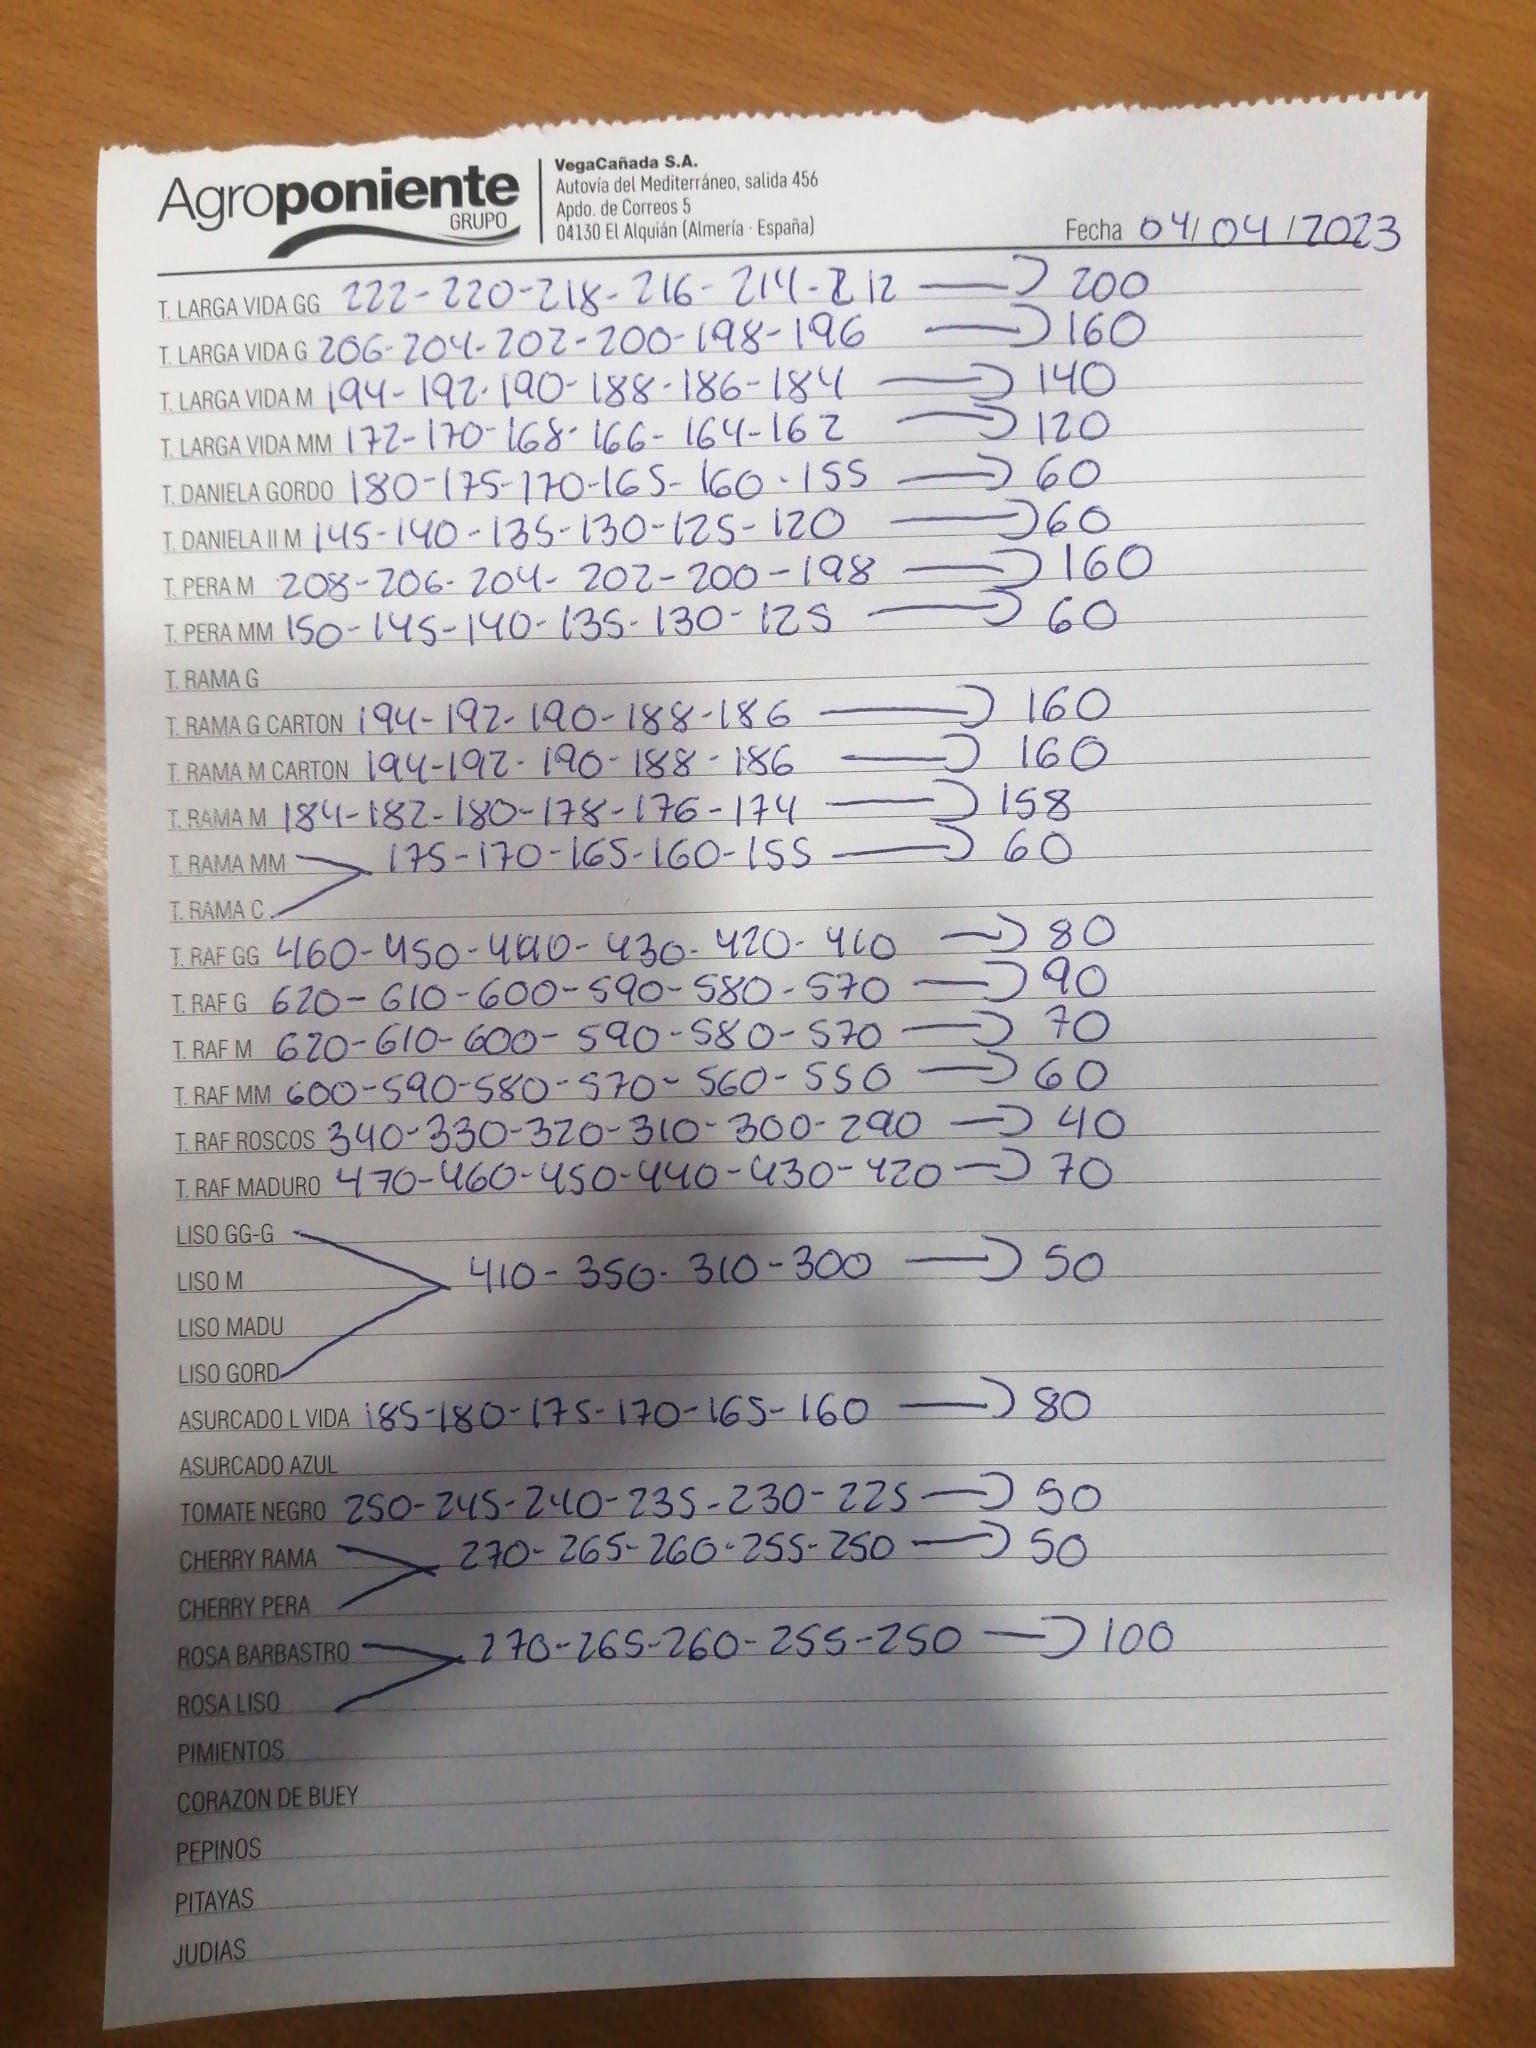 Agroponiente
GRUPO
VegaCañada S.A.
Autovía del Mediterráneo, salida 456
Apdo. de Correos 5
04130 El Alquián (Almería · España)
Fecha 04/04/2023
T. LARGA VIDA GG 222-220-218-216-214-212 200
T. LARGA VIDA G 206-204-202-200-198-196 160
T. LARGA VIDA M 194-192-190-188-186-184 140
T. LARGA VIDA MM 172-170-168-166-164-162 120
T. DANIELA GORDO 180-175-170-165-160-155 60
T. DANIELA II M 145-140-135-130-125-120 60
T. PERA M 208-206-204-202-200-198 160
T. PERA MM 150-145-140-135-130-125 60
T. RAMA G
T. RAMA G CARTON 194-192-190-188-186 160
T. RAMA M CARTON 194-192-190-188-186 160
T. RAMA M 184-182-180-178-176-174 158
T. RAMA MM 175-170-165-160-155 60
T. RAMA C
T. RAF GG 460-450-440-430-420-410 80
T. RAF G 620-610-600-590-580-570 90
T. RAF M 620-610-600-590-580-570 70
T. RAF MM 600-590-580-570-560-550 60
T. RAF ROSCOS 340-330-320-310-300-290 40
T. RAF MADURO 470-460-450-440-430-420 70
LISO GG-G
LISO M 410-350-310-300 50
LISO MADU
LISO GORD
ASURCADO L VIDA 185-180-175-170-165-160 80
ASURCADO AZUL
TOMATE NEGRO 250-245-240-235-230-225 50
CHERRY RAMA 270-265-260-255-250 50
CHERRY PERA
ROSA BARBASTRO 270-265-260-255-250 100
ROSA LISO
PIMIENTOS
CORAZON DE BUEY
PEPINOS
PITAYAS
JUDIAS